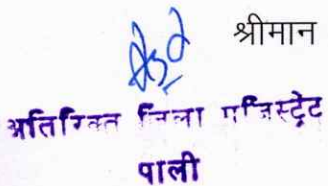 श्रीमान
अतिरिक्त जिला मजिस्ट्रेट
पाली